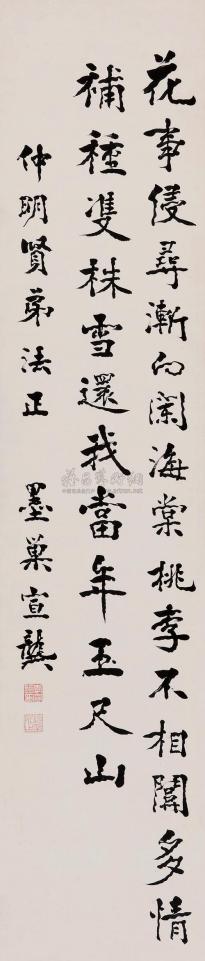 花事侵尋漸向闌海棠桃李不相關多情
補種雙株雪還我當年玉尺山
仲明賢弟法正 墨巢宣龔